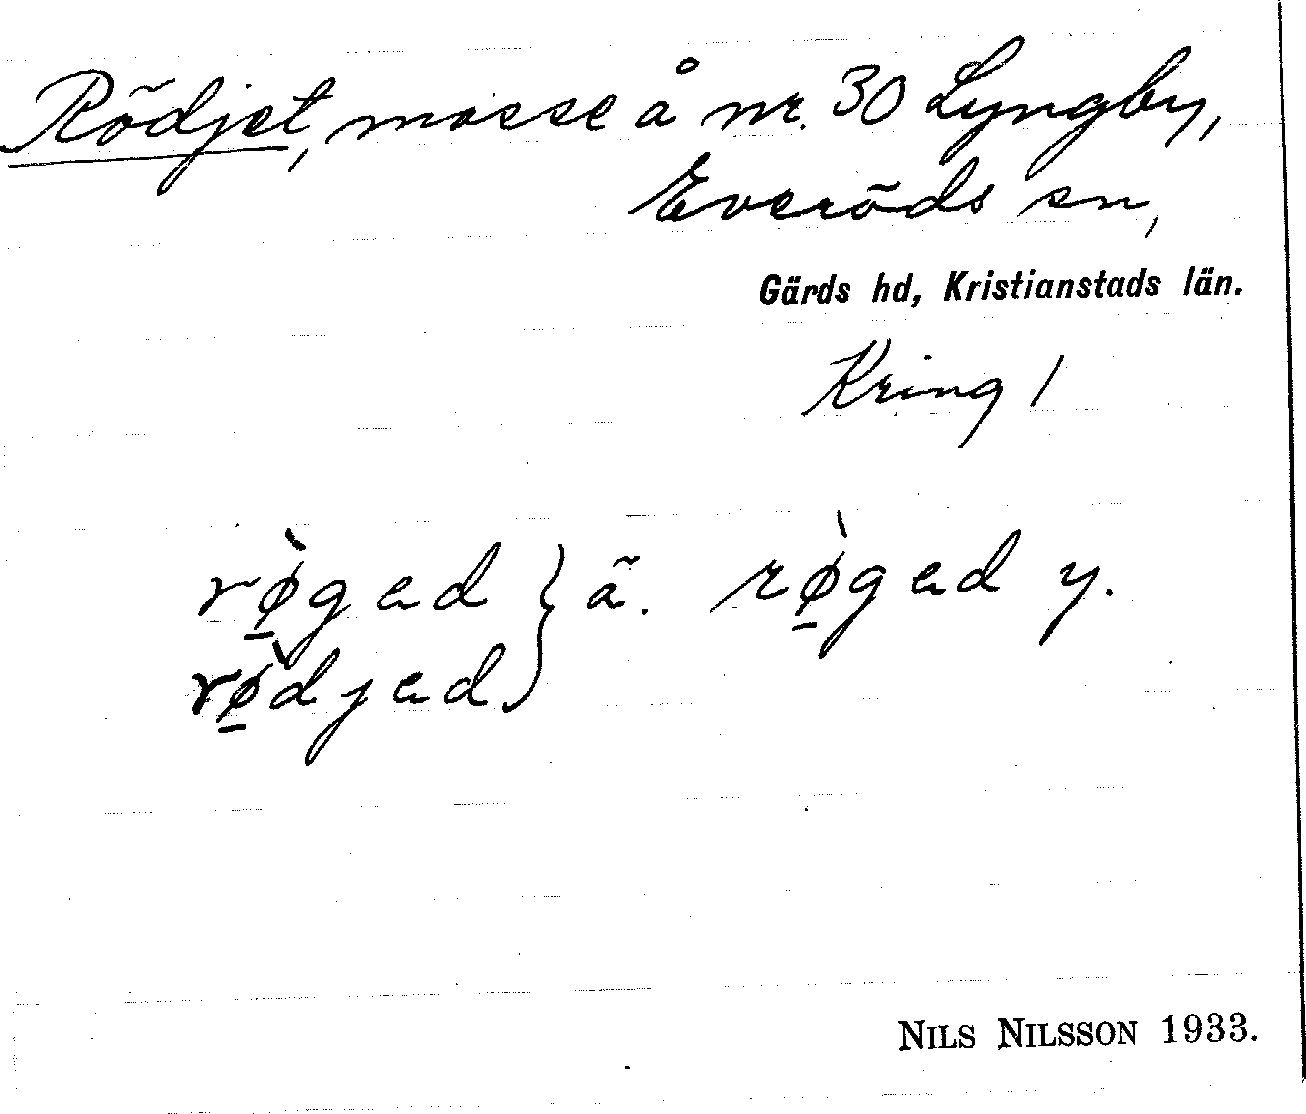 Rödjet, mosse å nr. 30 Lyngby,
Everöds sn,
Gärds hd, Kristianstads län.
Kring 1
rø̱̀gad } ä. rø̱̀gad y.
rø̱̀djad
NILS NILSSON 1933.